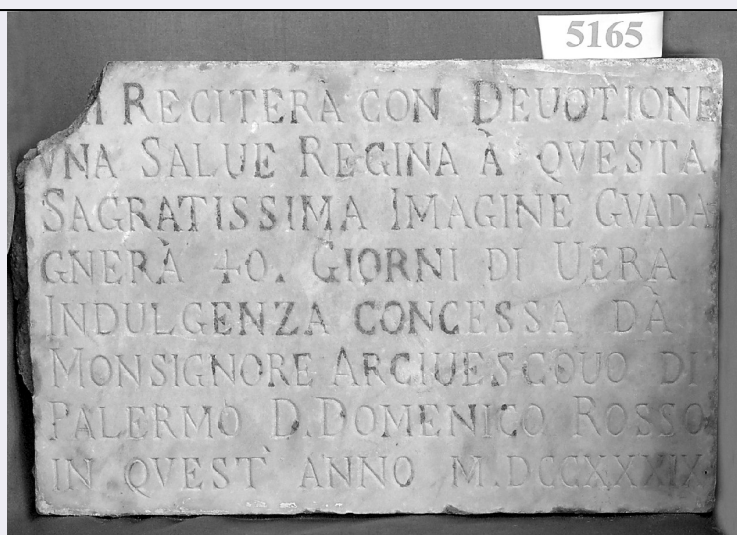 5165
RECITERÀ CON DEUOTIONE
VNA SALUE REGINA À QVESTA
SAGRATISSIMA IMAGINE GVADA
GNERÀ 40. GIORNI DI UERA
INDULGENZA CONCESSA DÀ
MONSIGNORE ARCIUESCOUO DI
PALERMO D. DOMENICO ROSSO
IN QVEST' ANNO M.DCCXXXIX